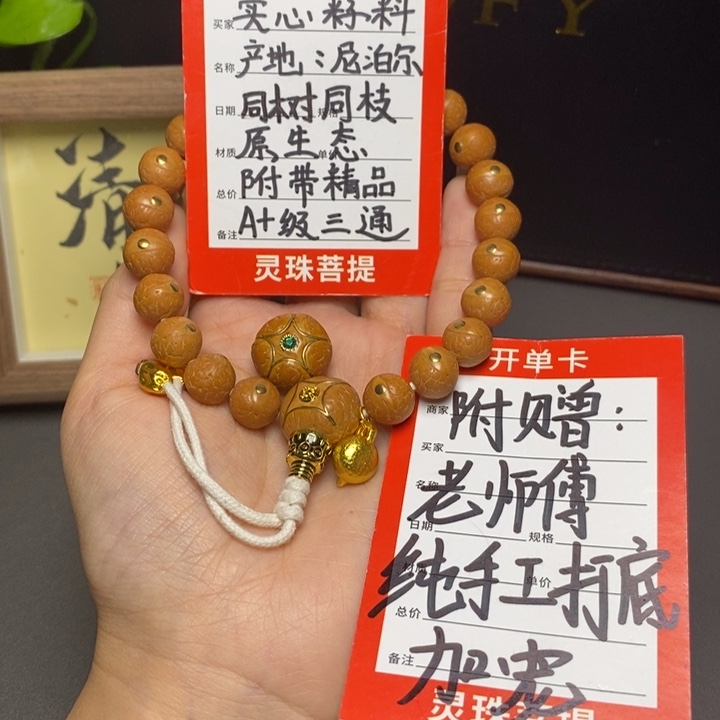 买家 实心籽料
名称 产地：尼泊尔
日期 同树同枝 规格
材质 原生态 单价
总价 附带精品
备注 A+级三通
灵珠菩提
开单卡
商家 附贝赠：
买家
名称 老师傅
日期 规格
材质 纯手工打底 单价
总价
备注 加宽
灵珠菩提
清
FY